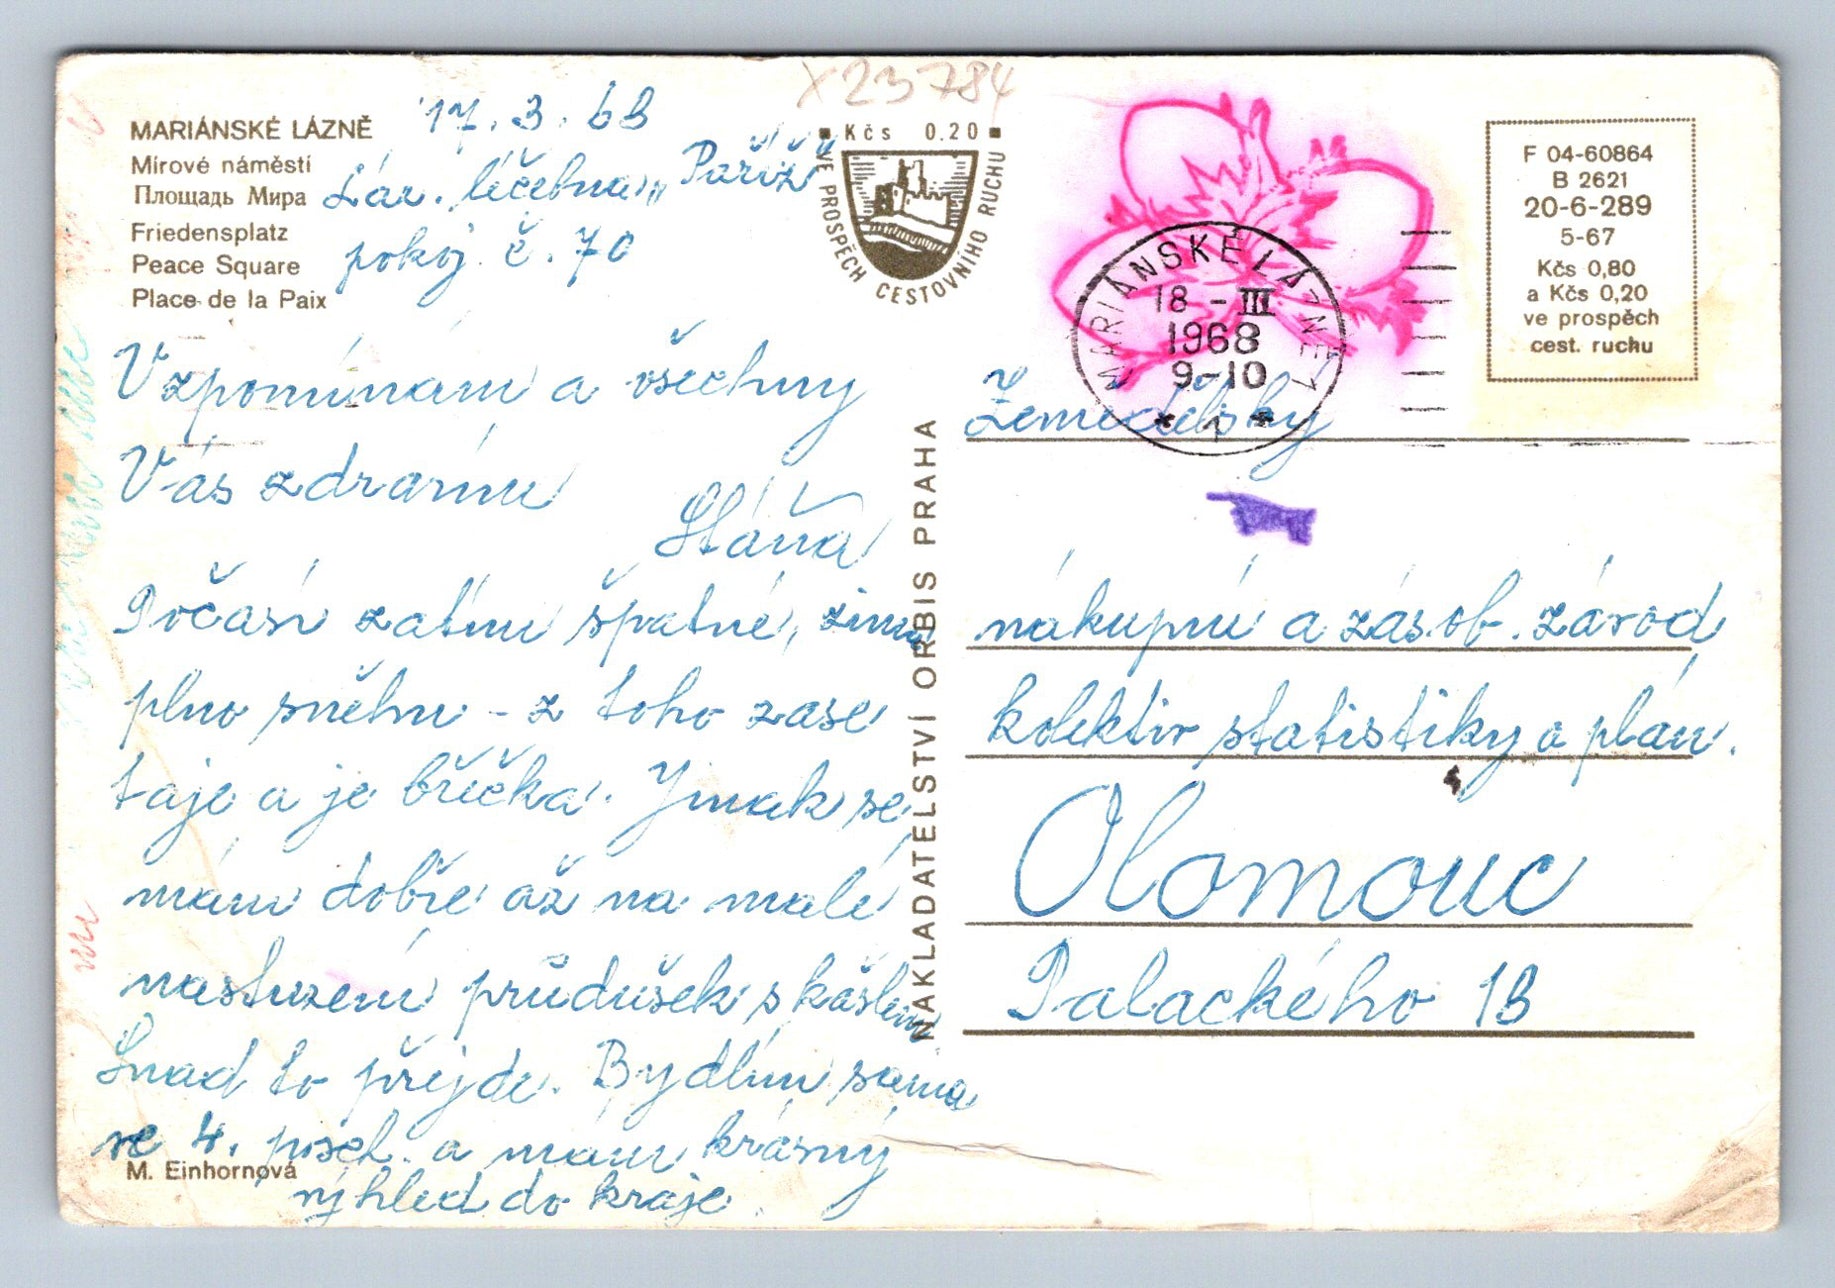 X23784
MARIÁNSKÉ LÁZNĚ
Mírové náměstí
Площадь Мира
Friedensplatz
Peace Square
Place de la Paix
17. 3. 68
Láz. léčebna „Paříž"
pokoj č. 70
Vzpomínám a všechny
Vás zdravím
Stáňa
Počasí zatím špatné, zima
plno sněhu - z toho zase
taje a je břečka. Jinak se
mám dobře až na malé
nastuzení průdušek s kašlem
Snad to přejde. Bydlím sama
ve 4. posch. a mám krásný
výhled do kraje.
M. Einhornová
Kčs 0.20
VE PROSPĚCH CESTOVNÍHO RUCHU
NAKLADATELSTVÍ ORBIS PRAHA
MARIÁNSKÉ LÁZNĚ 1
18 -III
1968
9-10
* 1 *
F 04-60864
B 2621
20-6-289
5-67
Kčs 0,80
a Kčs 0,20
ve prospěch
cest. ruchu
Zemědělský
nákupní a zásob. závod
kolektiv statistiky a plán.
Olomouc
Palackého 13